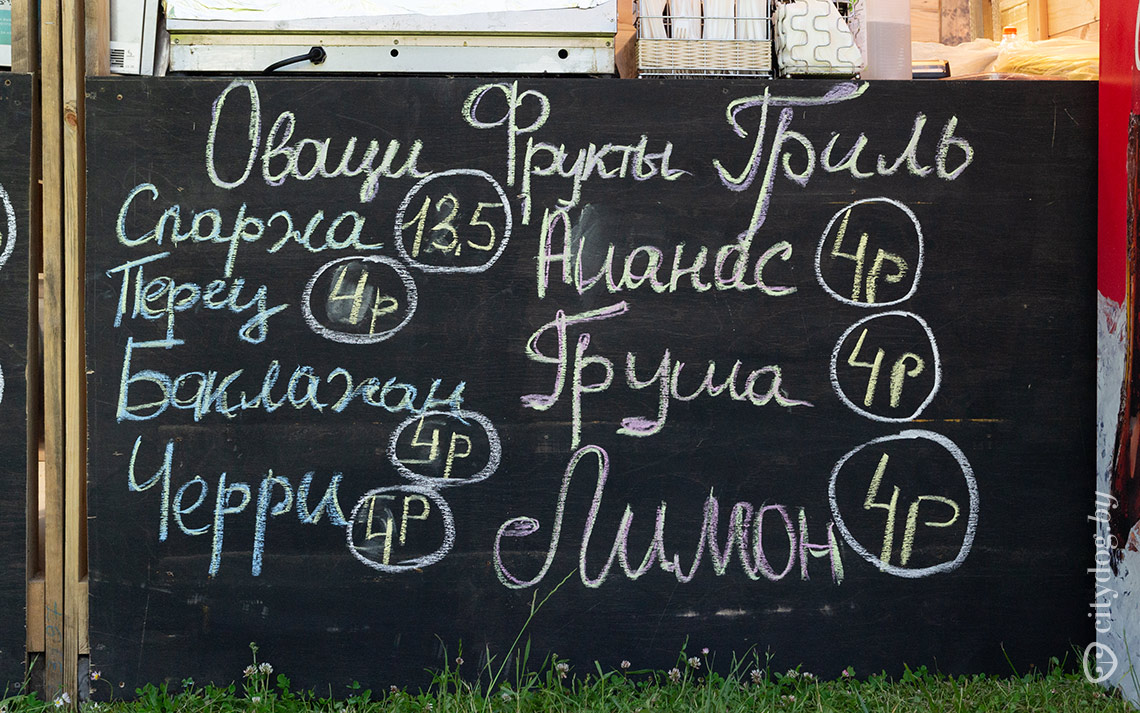 Оващи Фрукты Гриль
Спаржа 13,5
Перец 4р
Баклажан 4р
Черри 4р
Ананас 4р
Груша 4р
Лимон 4р
citydog.by